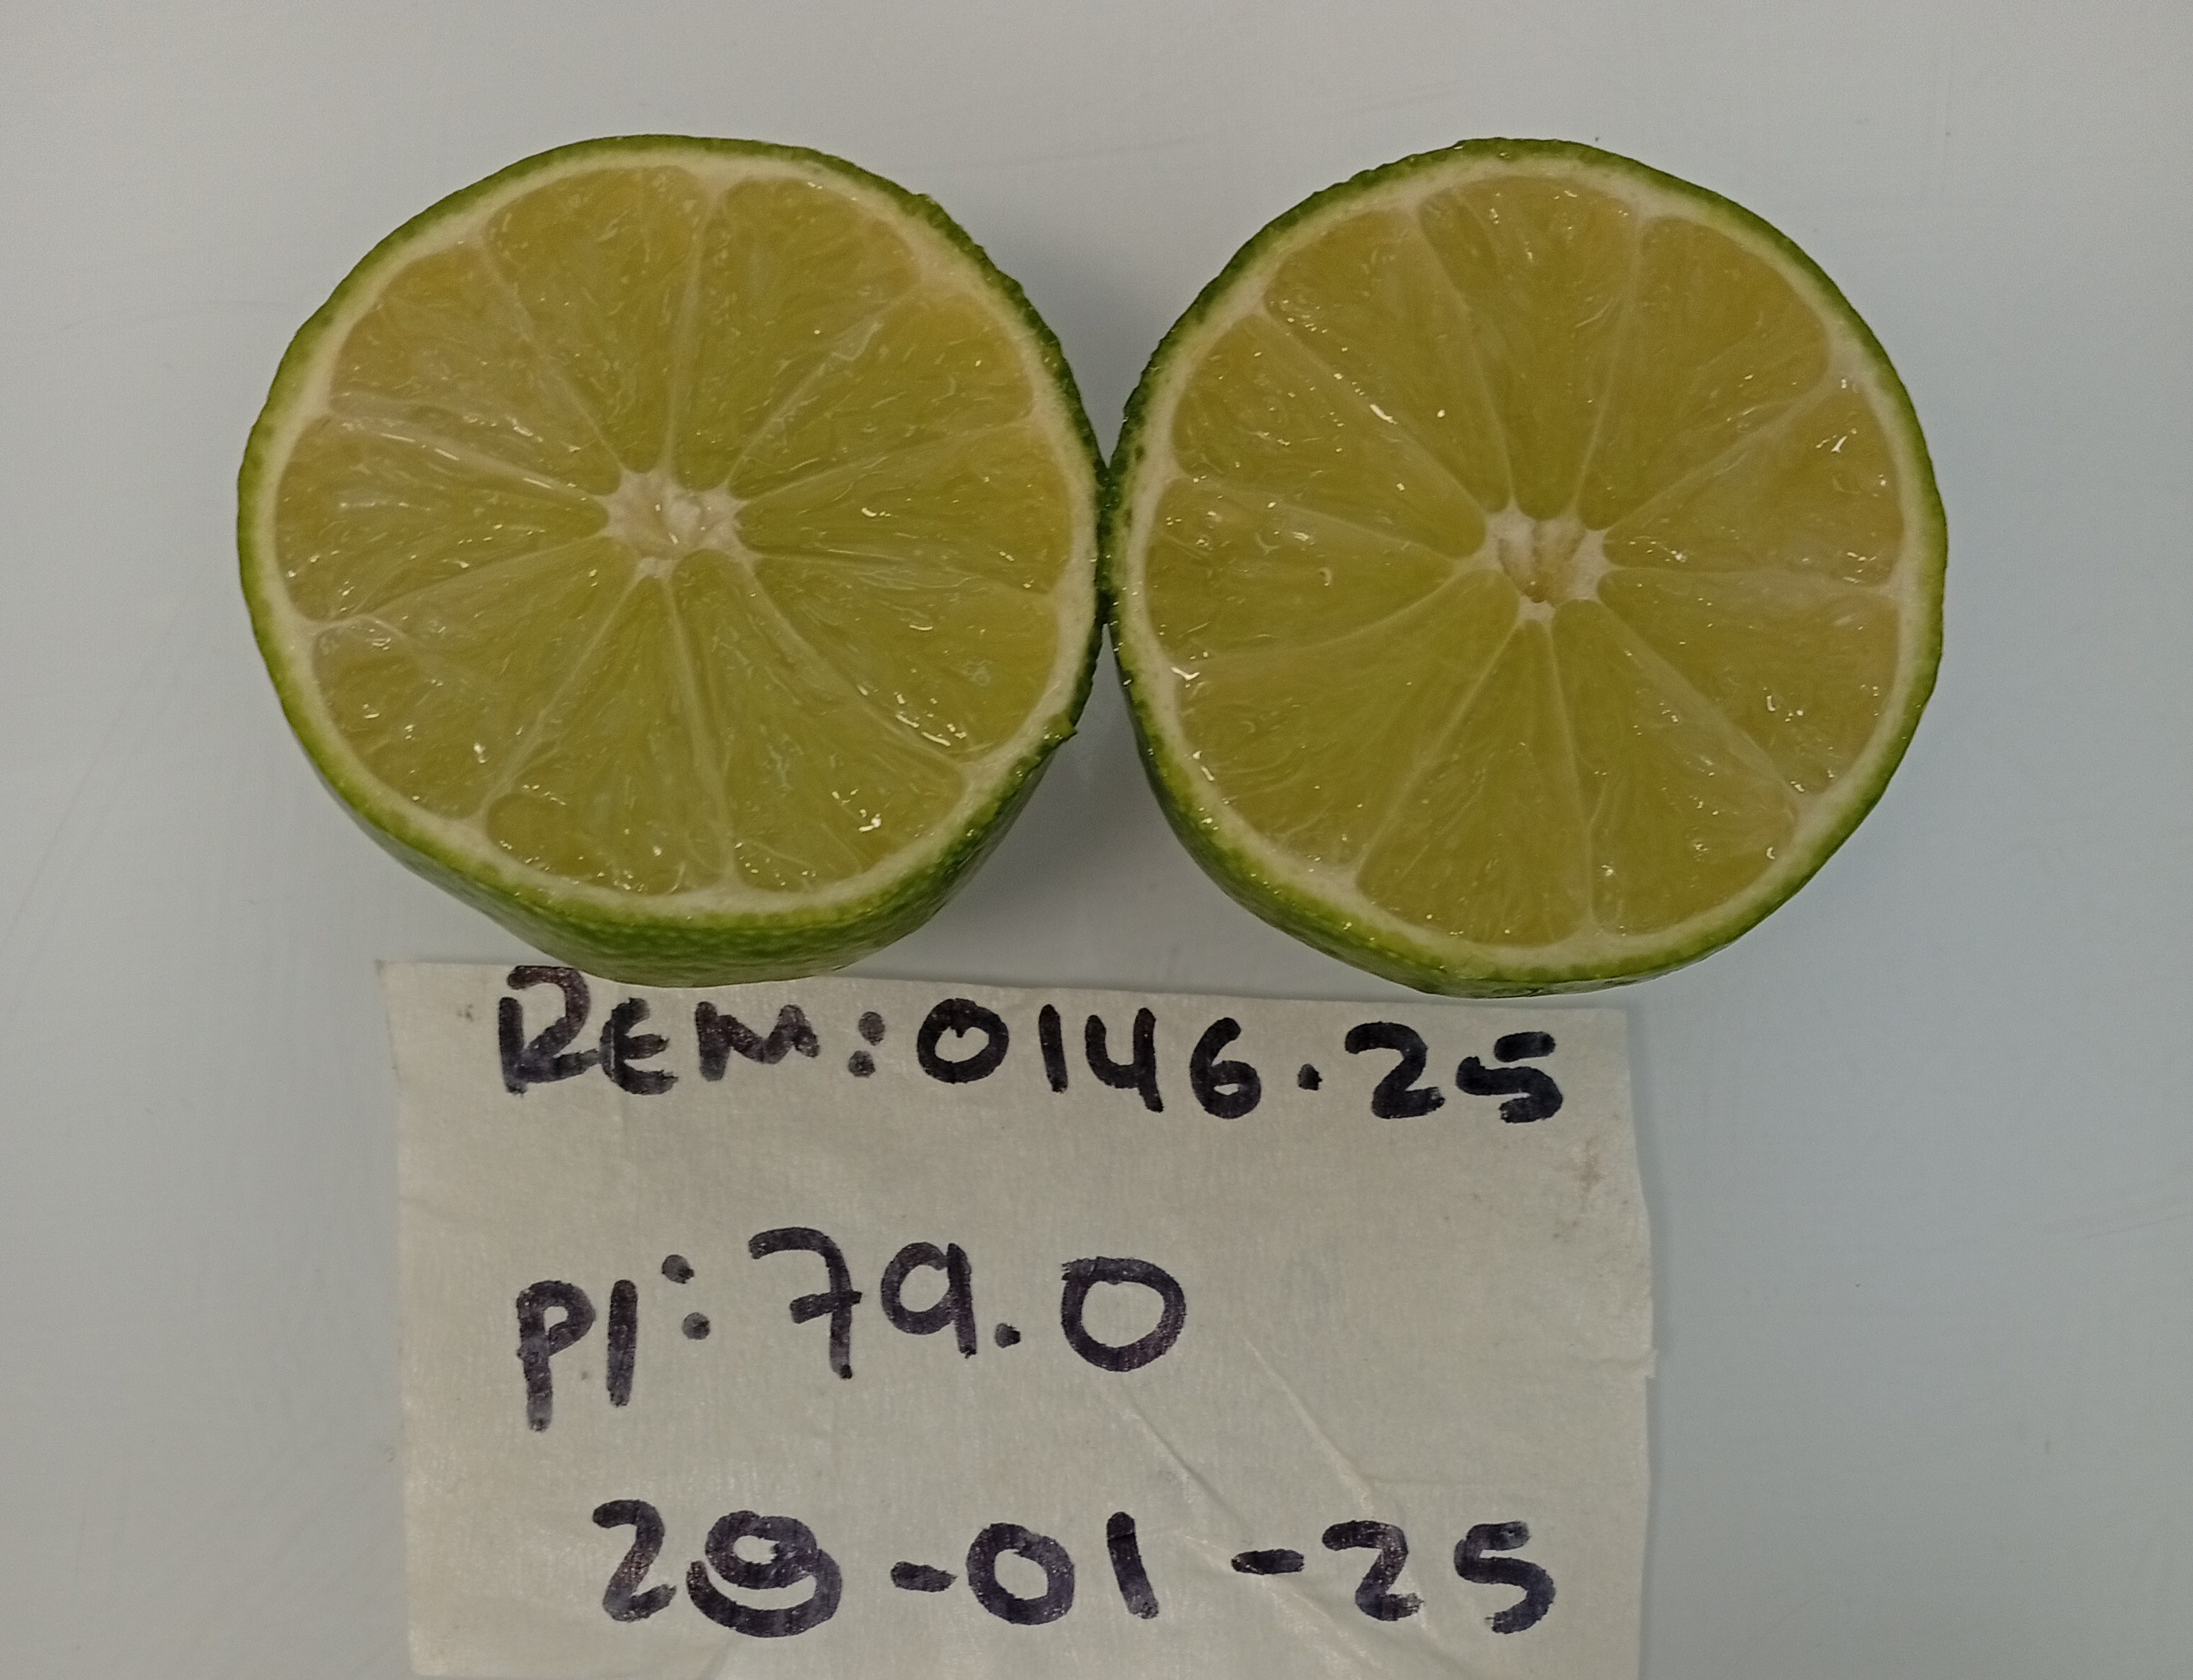 REM: 0146.25
PI: 79.0
28-01-25